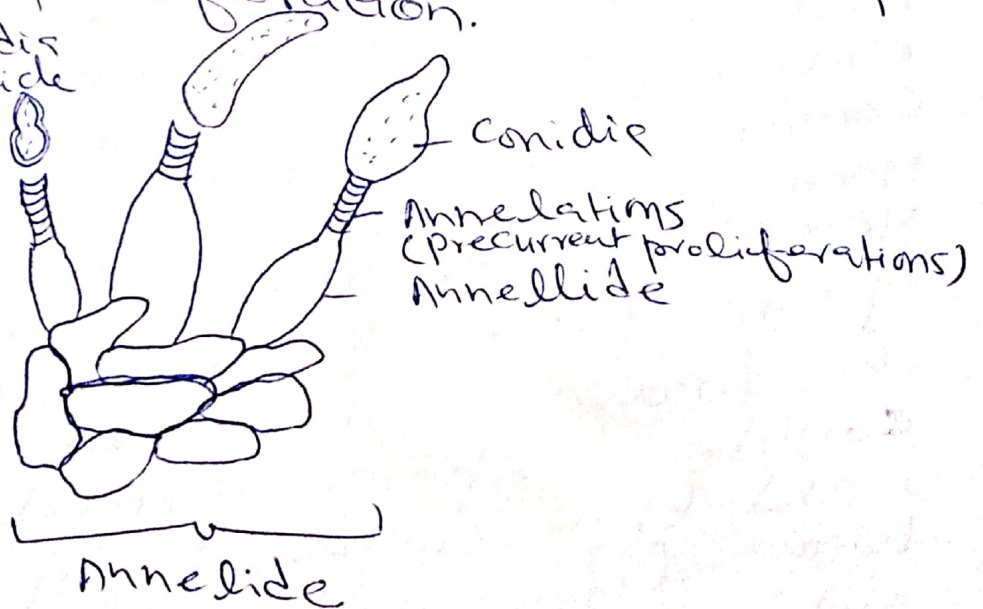 dis
ide
Conidia
Annelations
(precurrent proliferations)
Annellide
Annelide